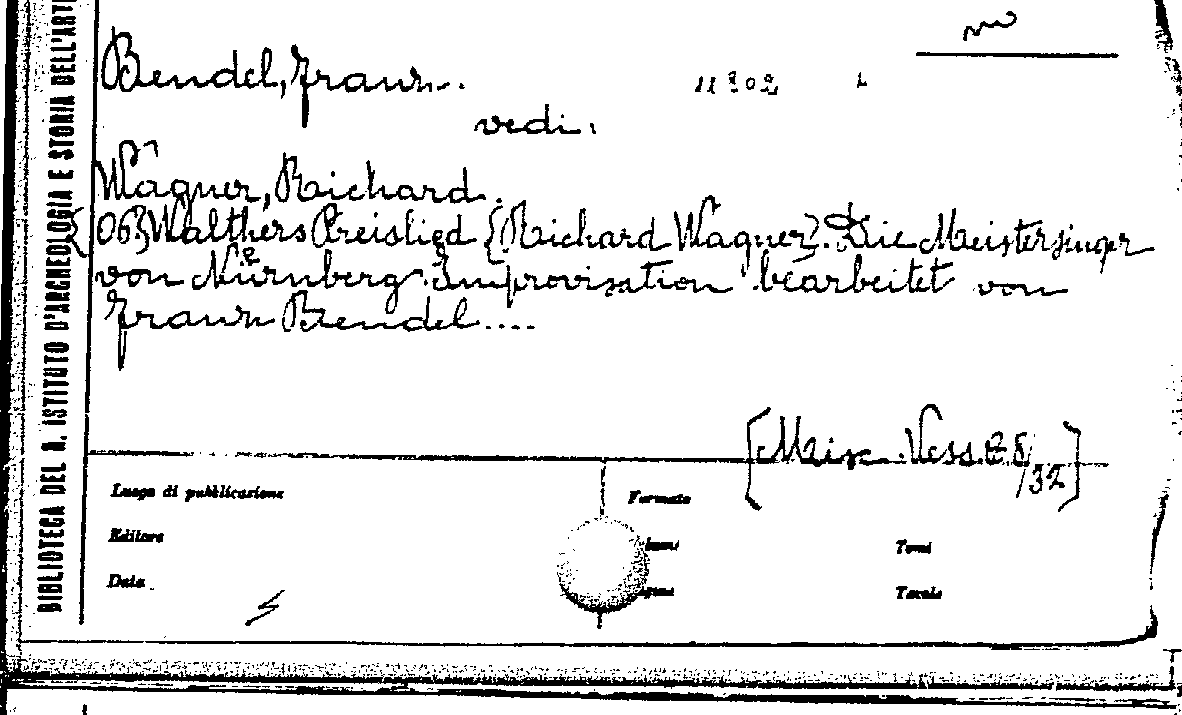 BIBLIOTECA DEL R. ISTITUTO D'ARCHEOLOGIA E STORIA DELL'ARTE
Bendel, Franz..
11302
vedi:
Wagner, Richard.
{063} Walthers Preislied {Richard Wagner}. Die Meistersinger
von Nürnberg. Improvisation bearbeitet von
Franz Bendel....
[Misc. Vess. 28/32]
Luogo di pubblicazione
Formato
Editore
Tomi
Data
Tavole